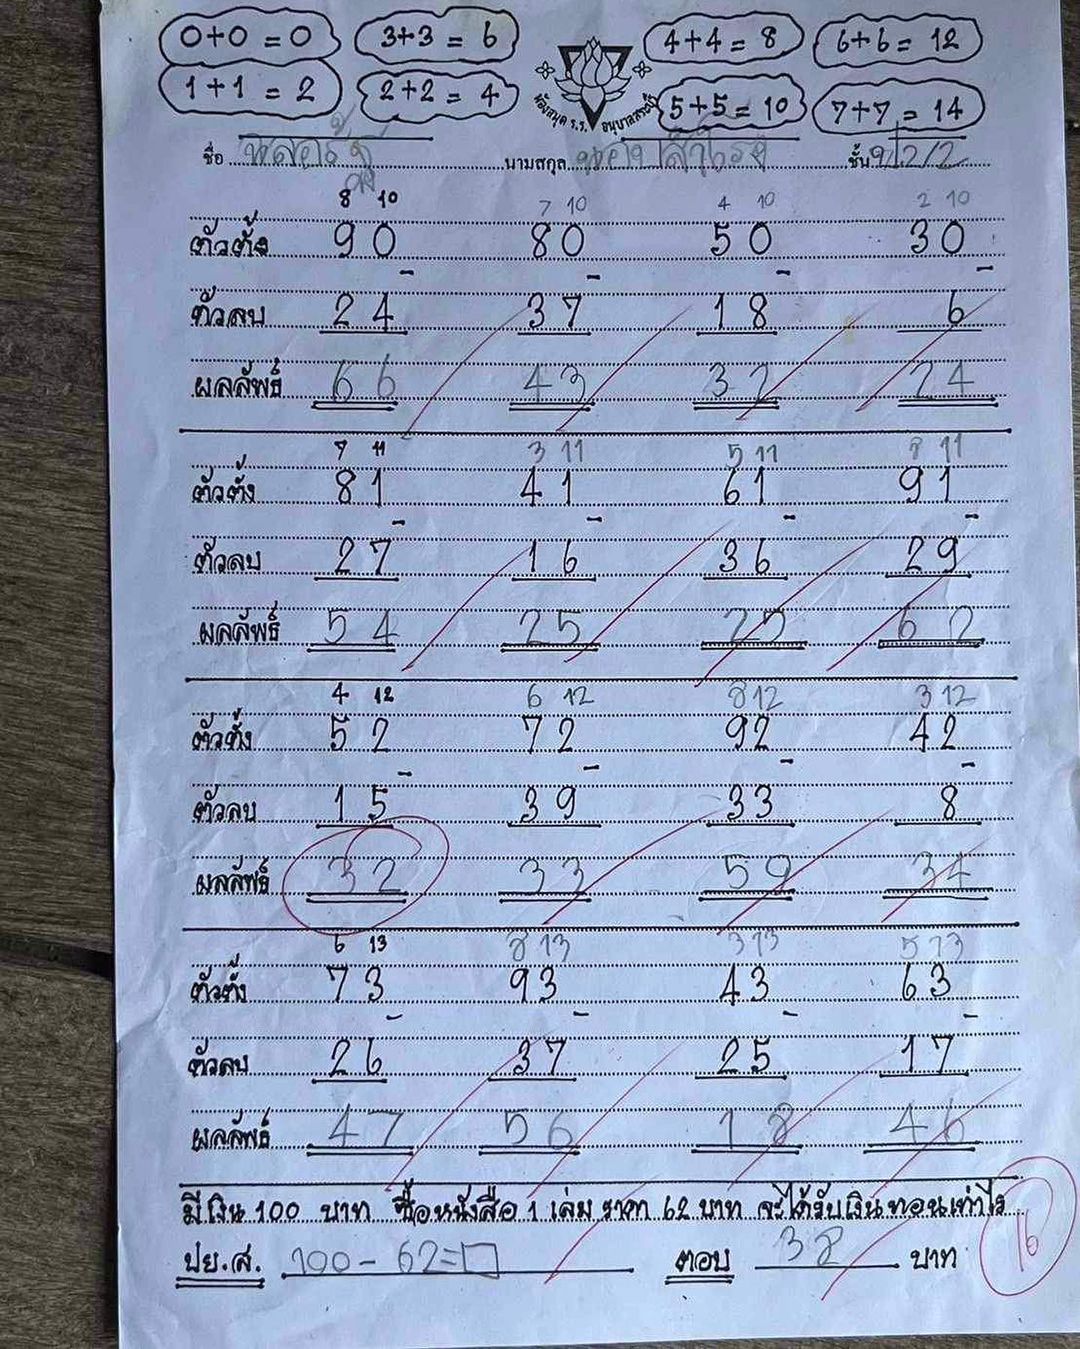 0+0 = 0 3+3 = 6 4+4 = 8 6+6 = 12
1+1 = 2 2+2 = 4 5+5 = 10 7+7 = 14
ห้องสมุด ร.ร. อนุบาล
ชื่อ นามสกุล ชั้น ป.2/2
8 10 7 10 4 10 2 10
ตัวตั้ง 90 80 50 30
- - - -
ตัวลบ 24 37 18 6
ผลลัพธ์ 66 43 32 24
7 11 3 11 5 11 8 11
ตัวตั้ง 81 41 61 91
- - - -
ตัวลบ 27 16 36 29
ผลลัพธ์ 54 25 25 62
4 12 6 12 8 12 3 12
ตัวตั้ง 52 72 92 42
- - - -
ตัวลบ 15 39 33 8
ผลลัพธ์ 32 33 59 34
6 13 8 13 3 13 5 13
ตัวตั้ง 73 93 43 63
- - - -
ตัวลบ 26 37 25 17
ผลลัพธ์ 47 56 18 46
มีเงิน 100 บาท ซื้อหนังสือ 1 เล่ม ราคา 62 บาท จะได้รับเงินทอนเท่าไร
ปย.ส. 100 - 62 = □ ตอบ 38 บาท
16